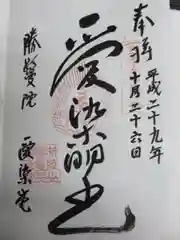 奉拝
平成二十九年
十月二十六日
愛染明王
愛染堂
勝鬘院